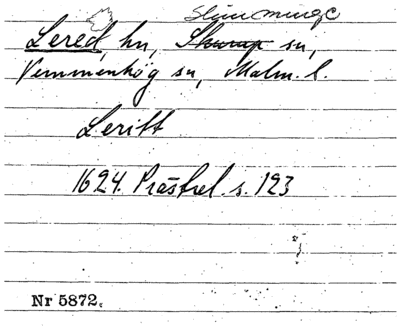 Slimminge
Lered, hn, Skurup sn,
Vemmenhög sn, Malm. l.
Leritt
1624. Prästrel. s. 123
Nr 5872.